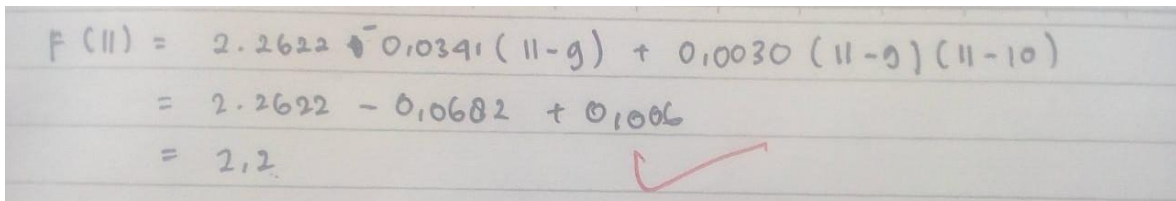 F (11) = 2.2622 - 0,0341 (11-9) + 0,0030 (11-9) (11-10)
= 2.2622 - 0,0682 + 0,006
= 2,2